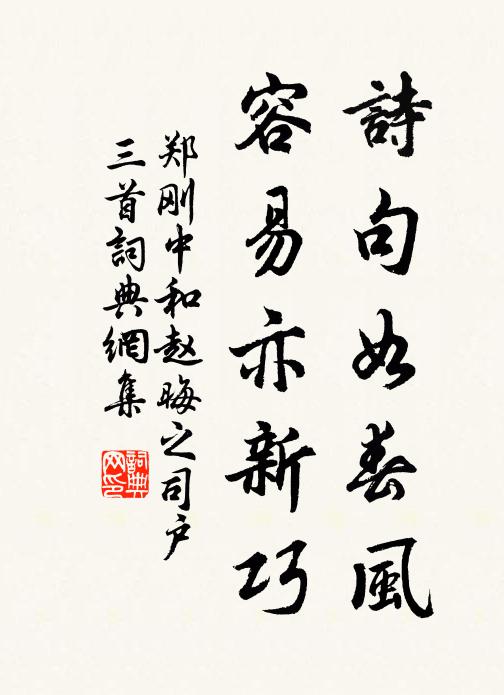 詩句如春風
容易亦新巧
郑刚中和赵晦之司户
三首詞典網集
詞典网印